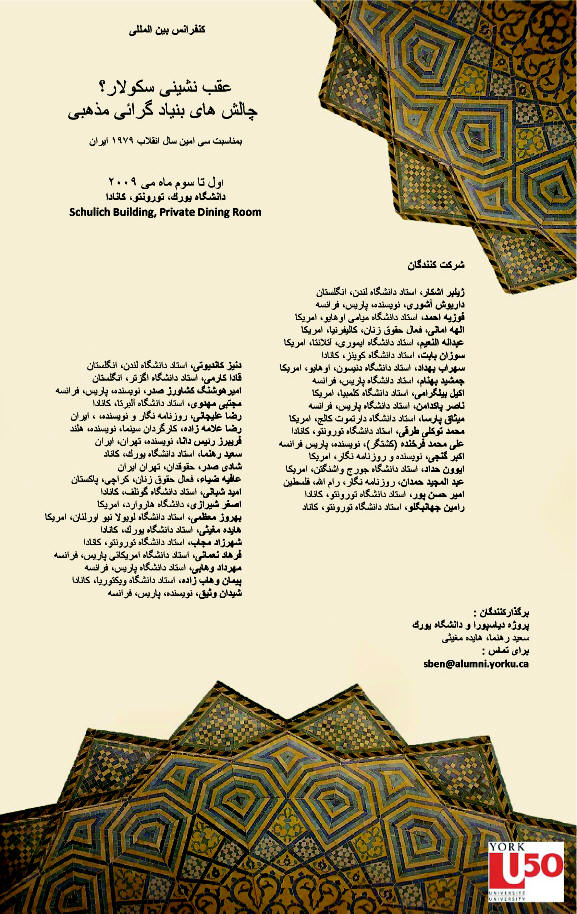 کنفرانس بین المللی
عقب نشینی سکولار؟
چالش های بنیاد گرائی مذهبی
بمناسبت سی امین سال انقلاب ۱۹۷۹ ایران
اول تا سوم ماه می ۲۰۰۹
دانشگاه یورك، تورونتو، کانادا
Schulich Building, Private Dining Room
شرکت کنندگان
ژیلبر اشکار، استاد دانشگاه لندن، انگلستان
داریوش آشوری، نویسنده، پاریس، فرانسه
فوزیه احمد، استاد دانشگاه میامی اوهایو، امریکا
الهه امانی، فعال حقوق زنان، کالیفرنیا، امریکا
عبداله النعیم، استاد دانشگاه ایموری، آتلانتا، امریکا
سوزان بابت، استاد دانشگاه کوینز، کانادا
سهراب بهداد، استاد دانشگاه دنیسون، اوهایو، امریکا
جمشید بهنام، استاد دانشگاه پاریس، فرانسه
اکیل بیلگرامی، استاد دانشگاه کلمبیا، امریکا
ناصر پاکدامن، استاد دانشگاه پاریس، فرانسه
میثاق پارسا، استاد دانشگاه دارتموت کالج، امریکا
محمد توکلی طرقی، استاد دانشگاه تورونتو، کانادا
علی محمد فرخنده (کشتگر)، نویسنده، پاریس فرانسه
اکبر گنجی، نویسنده و روزنامه نگار، امریکا
ایوون حداد، استاد دانشگاه جورج واشنگتن، امریکا
عبد المجید حمدان، روزنامه نگار، رام الله، فلسطین
امیر حسن پور، استاد دانشگاه تورونتو، کانادا
رامین جهانبگلو، استاد دانشگاه تورونتو، کاناد
دنیز کاندیوتی، استاد دانشگاه لندن، انگلستان
قادا کارمی، استاد دانشگاه اگزتر، انگلستان
امیرهوشنگ کشاورز صدر، نویسنده، پاریس، فرانسه
مجتبی مهدوی، استاد دانشگاه آلبرتا، کانادا
رضا علیجانی، روزنامه نگار و نویسنده، ، ایران
رضا علامه زاده، کارگردان سینما، نویسنده، هلند
فریبرز رئیس دانا، نویسنده، تهران، ایران
سعید رهنما، استاد دانشگاه یورك، کاناد
شادی صدر، حقوقدان، تهران ایران
عافیه ضیاء، فعال حقوق زنان، کراچی، پاکستان
امید شبانی، استاد دانشگاه گونلف، کانادا
اصغر شیرازی، دانشگاه هاروارد، امریکا
بهروز معظمی، استاد دانشگاه لویولا نیو اورلئان، امریکا
هایده مغیثی، استاد دانشگاه یورك، کانادا
شهرزاد مجاب، استاد دانشگاه تورونتو، کانادا
فرهاد نعمانی، استاد دانشگاه امریکائی پاریس، فرانسه
مهرداد وهابی، استاد دانشگاه پاریس، فرانسه
پیمان وهاب زاده، استاد دانشگاه ویکتوریا، کانادا
شیدان وثیق، نویسنده، پاریس، فرانسه
برگذارکنندگان :
پروژه دیاسپورا و دانشگاه یورك
سعید رهنما، هایده مغیثی
برای تماس :
sben@alumni.yorku.ca
YORK
U50
UNIVERSITÉ
UNIVERSITY